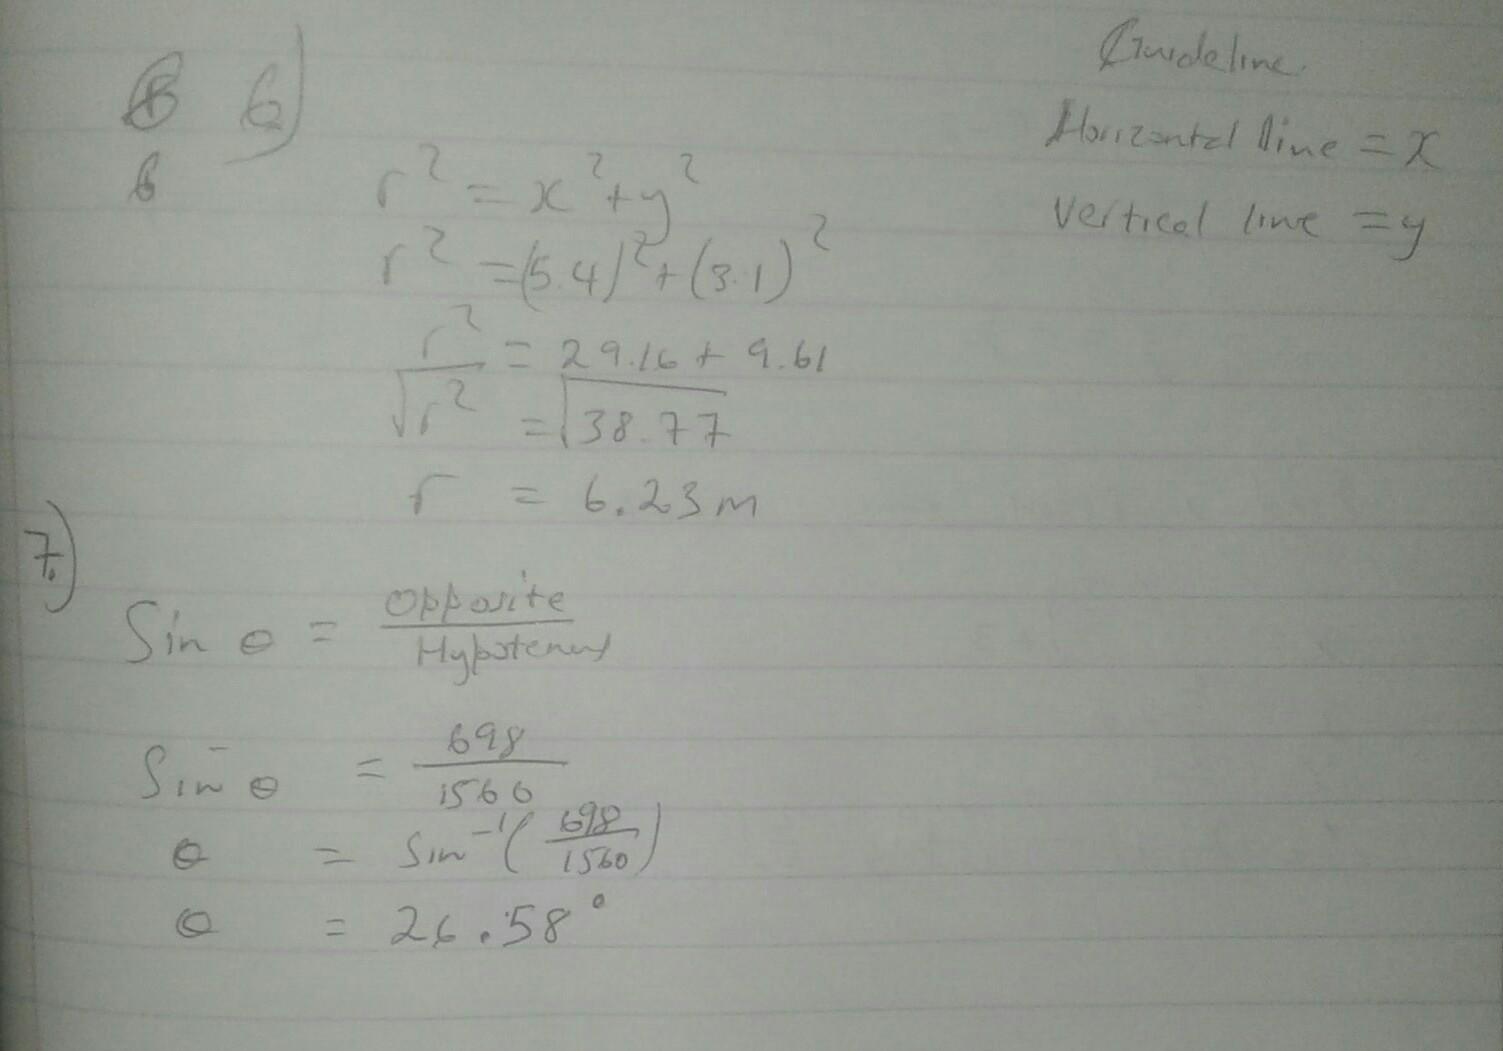 Guideline
Horizontal line = x
Vertical line = y
6)
6
r² = x² + y²
r² = (5.4)² + (3.1)²
r² = 29.16 + 9.61
√r² = √38.77
r = 6.23m
7.)
Sin θ = Opposite / Hypotenus
Sin θ = 698 / 1560
θ = Sin⁻¹ (698 / 1560)
θ = 26.58°